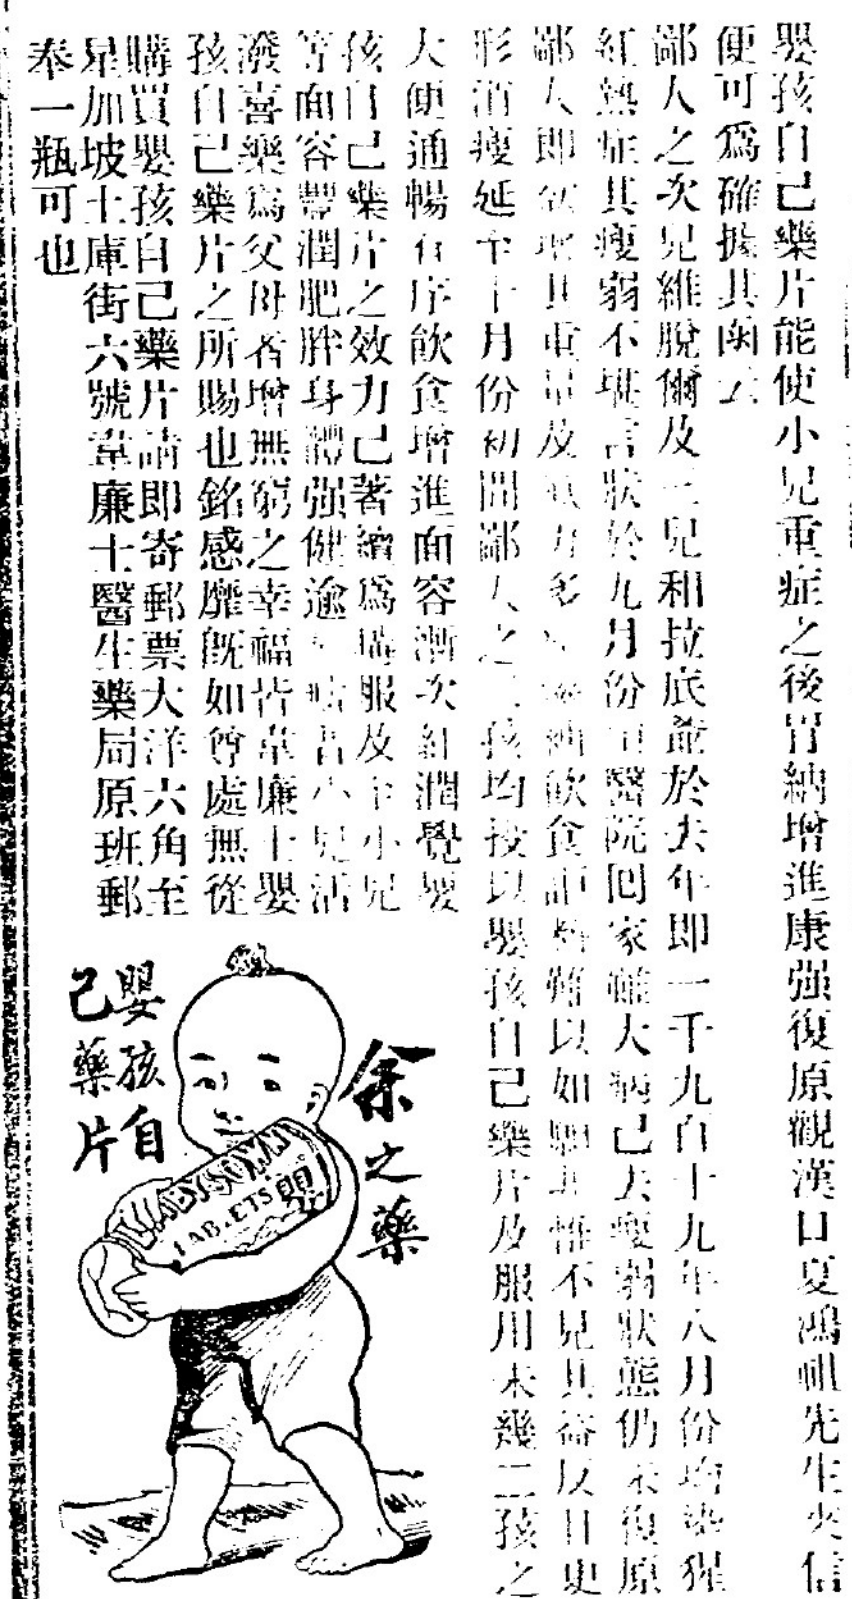 嬰孩自己藥片能使小兒重症之後胃納增進康强復原觀漢口夏鴻祖先生來信
便可爲確據其函云
鄙人之次兒維脫爾及三兒和拉底並於去年即一千九百十九年八月份均染猩
紅熱症其瘦弱不堪言狀於九月份由醫院回家雖大病己去瘦弱狀態仍未復原
鄙人即欲增其重量及氣力多 飲食 難以如願 惟不見其益反日見
形消瘦延至十月份初間鄙人之二孩均投以嬰孩自己藥片及服用未幾二孩之
大便通暢有序飲食增進面容漸次紅潤覺嬰
孩自己藥片之效力己著續爲購服及至小兒
等面容豐潤肥胖身體强健逾 小兒活
潑喜樂爲父母者增無窮之幸福皆韋廉士嬰
孩自己藥片之所賜也銘感靡旣如尊處無從
購買嬰孩自己藥片請即寄郵票大洋六角至
星加坡土庫街六號韋廉士醫生藥局原班郵
奉一瓶可也
余之藥
嬰孩自
己藥片
TABLETS